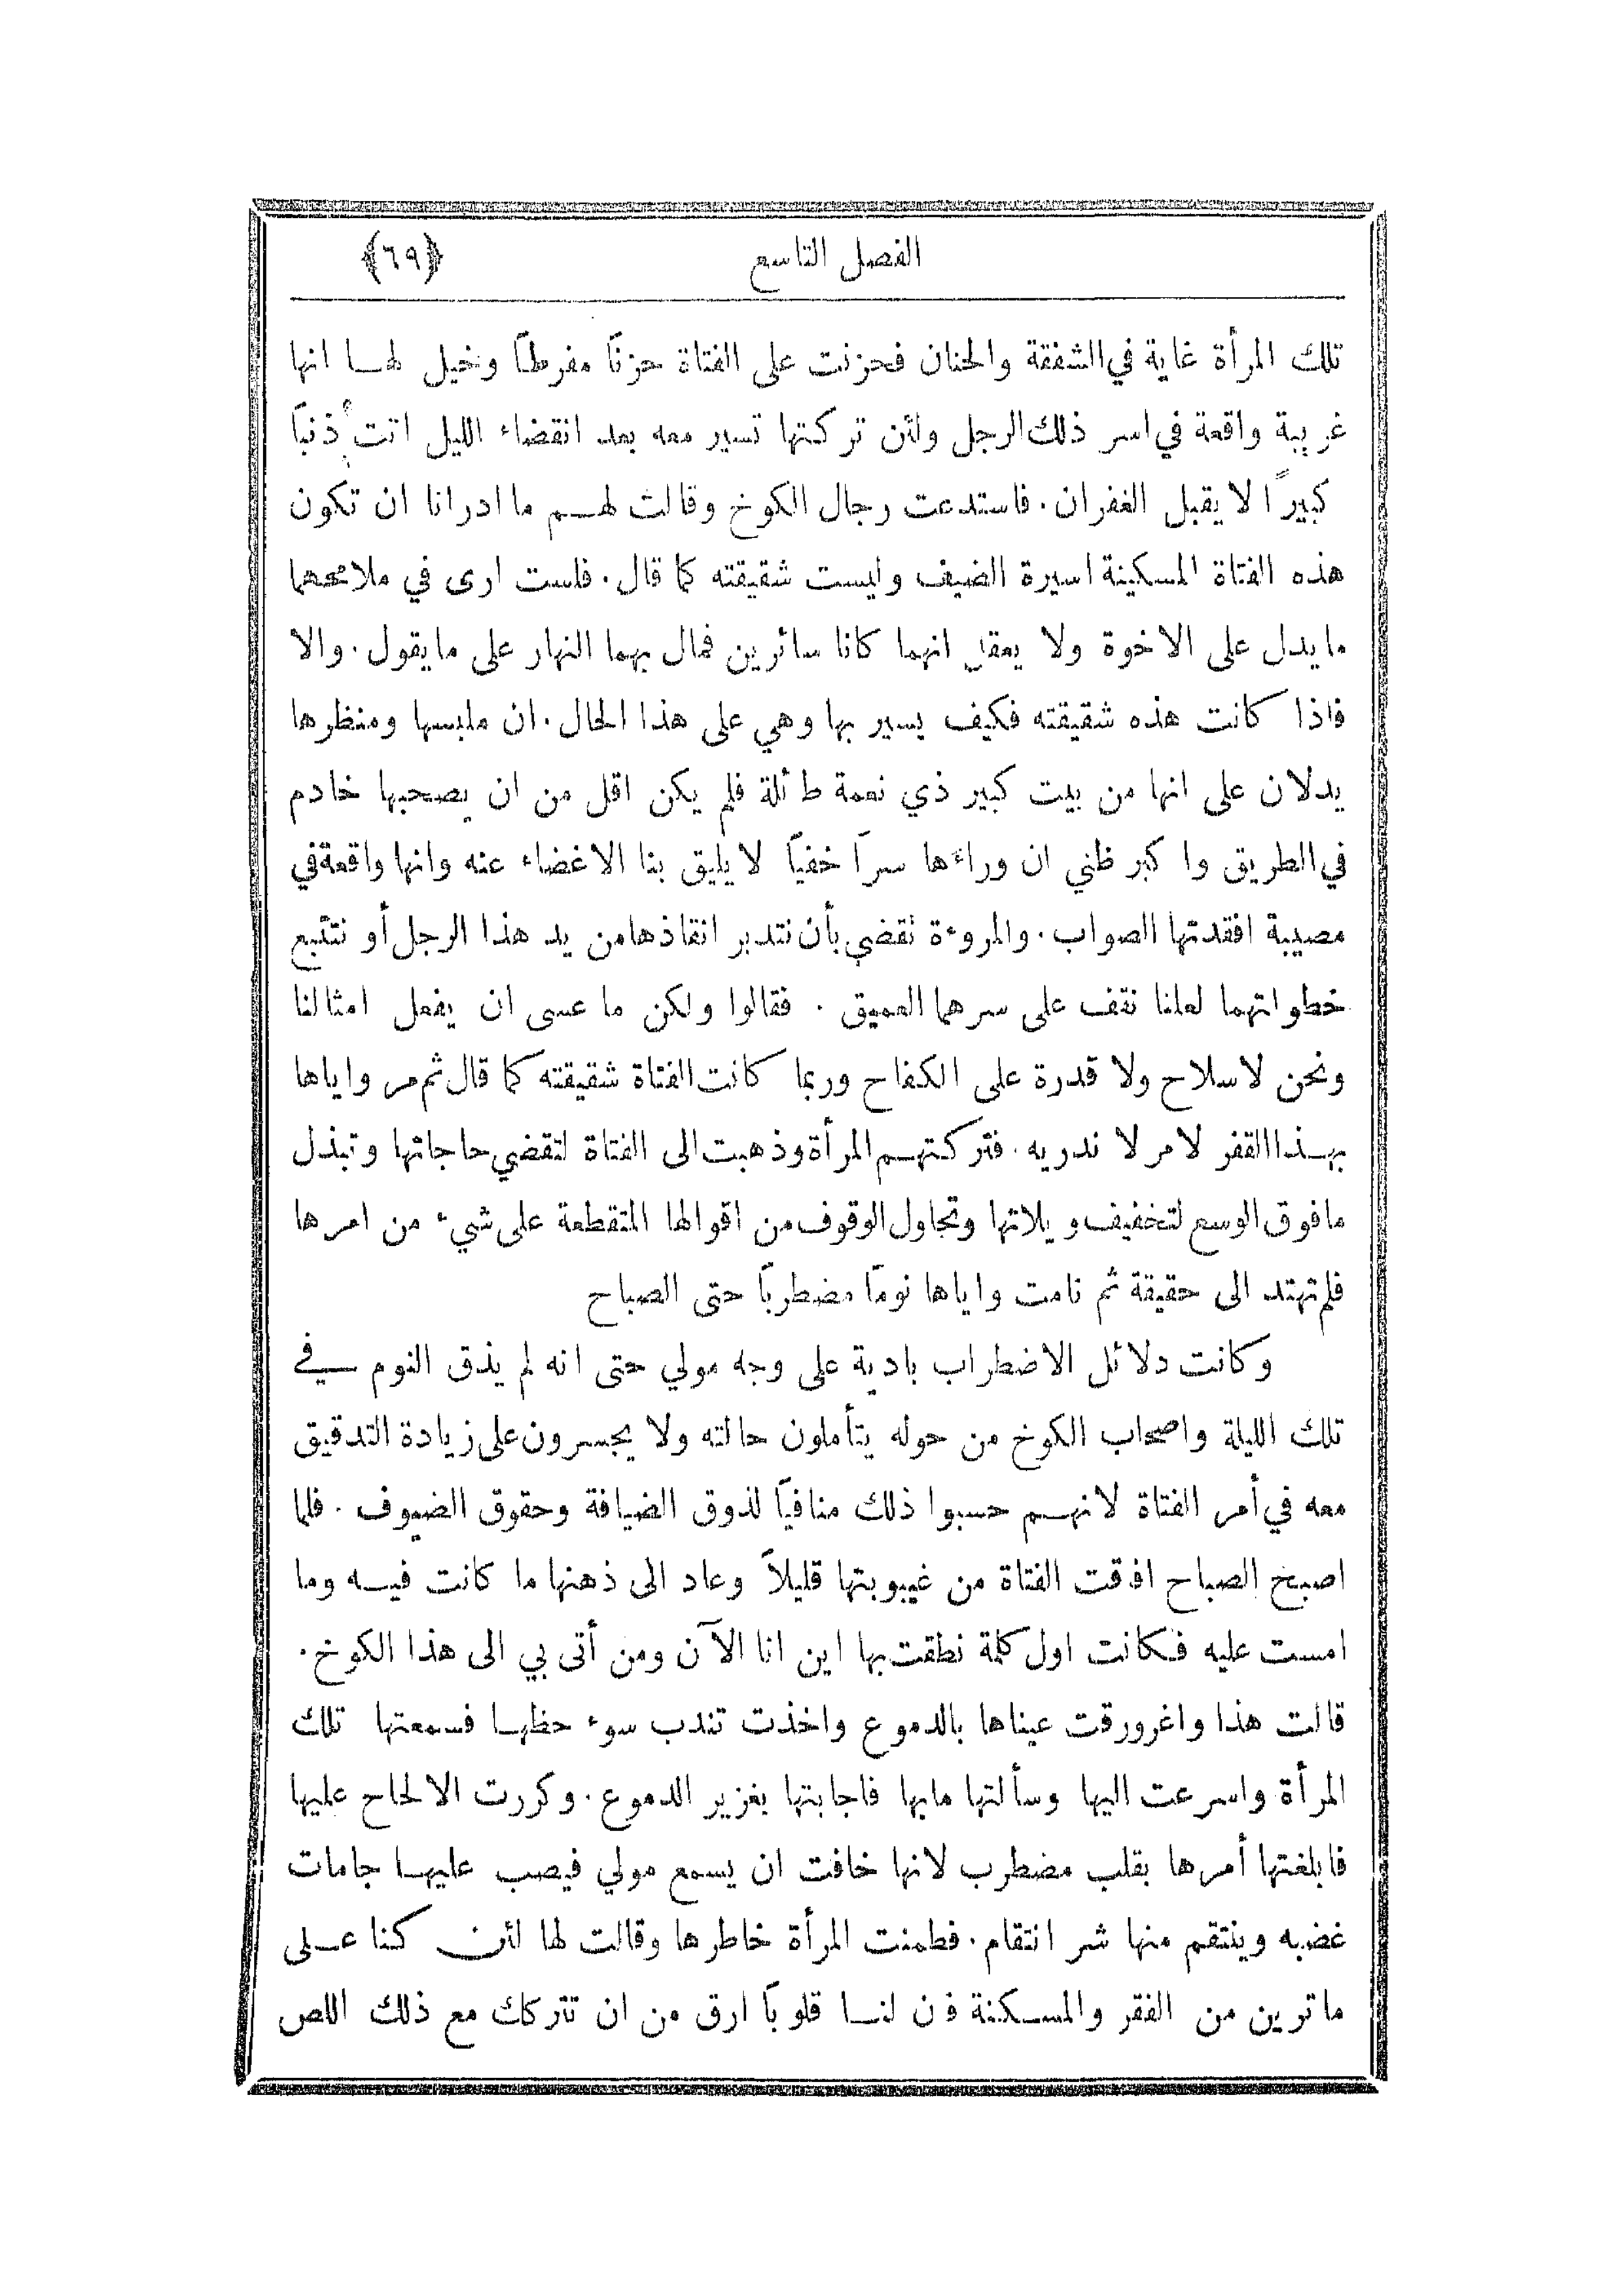 الفصل التاسع ﴿٦٩﴾
تلك المرأة غاية في الشفقة والحنان فحزنت على الفتاة حزنًا مفرطًا وخيل لها انها
غريبة واقعة في اسر ذلك الرجل ولئن تركتها تسير معه بعد انقضاء الليل اتت ذنبًا
كبيرًا لا يقبل الغفران . فاستدعت رجال الكوخ وقالت لهم ما ادرانا ان تكون
هذه الفتاة المسكينة اسيرة الضيف وليست شقيقته كما قال . فلست ارى في ملامحهما
ما يدل على الاخوة ولا يعقل انهما كانا سائرين فمال بهما النهار على ما يقول . والا
فاذا كانت هذه شقيقته فكيف يسير بها وهي على هذا الحال . ان ملبسها ومنظرها
يدلان على انها من بيت كبير ذي نعمة طائلة فلم يكن اقل من ان يصحبها خادم
في الطريق واكبر ظني ان وراءها سرًا خفيًا لا يليق بنا الاغضاء عنه وانها واقعة في
مصيبة افقدتها الصواب . والمروءة تقضي بأن نتدبر انقاذها من يد هذا الرجل أو نتتبع
خطواتهما لعلنا نقف على سرهما العميق . فقالوا ولكن ما عسى ان يفعل امثالنا
ونحن لا سلاح ولا قدرة على الكفاح وربما كانت الفتاة شقيقته كما قال ثم مر واياها
بهذا القفر لامر لا ندريه . فتركتهم المرأة وذهبت الى الفتاة لتقضي حاجاتها وتبذل
ما فوق الوسع لتخفيف ويلاتها وتحاول الوقوف من اقوالها المتقطعة على شيء من امرها
فلم تهتد الى حقيقة ثم نامت واياها نومًا مضطربًا حتى الصباح
وكانت دلائل الاضطراب بادية على وجه مولي حتى انه لم يذق النوم في
تلك الليلة واصحاب الكوخ من حوله يتأملون حالته ولا يجسرون على زيادة التدقيق
معه في أمر الفتاة لانهم حسبوا ذلك منافيًا لذوق الضيافة وحقوق الضيوف . فلما
اصبح الصباح افقت الفتاة من غيبوبتها قليلاً وعاد الى ذهنها ما كانت فيه وما
امست عليه فكانت اول كلمة نطقت بها اين انا الآن ومن أتى بي الى هذا الكوخ .
قالت هذا واغرورقت عيناها بالدموع واخذت تندب سوء حظها فسمعتها تلك
المرأة واسرعت اليها وسألتها ما بها فاجابتها بغزير الدموع . وكررت الالحاح عليها
فابلغتها أمرها بقلب مضطرب لانها خافت ان يسمع مولي فيصب عليها جامات
غضبه وينتقم منها شر انتقام . فطمنت المرأة خاطرها وقالت لها لئن كنا على
ما ترين من الفقر والمسكنة فن لنا قلوبًا ارق من ان تتركك مع ذلك اللص